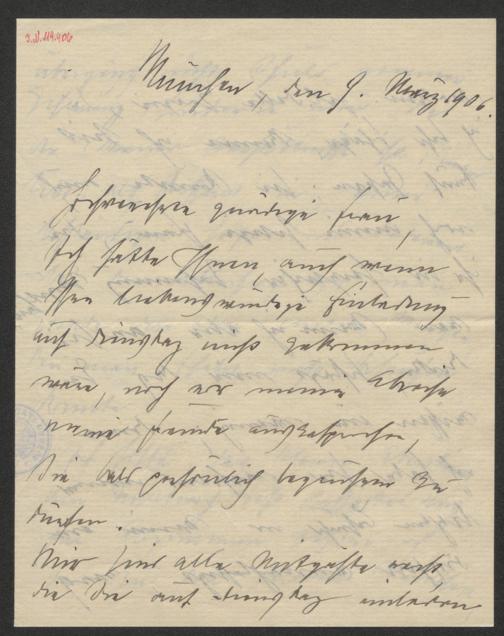 I.N. 119.906
München, den 9. März 1906.
Hochverehrte gnädige Frau,
Ich hätte Ihnen, auch wenn
Ihre liebenswürdige Einladung
auf Dinstag nicht gekommen
wäre, noch vor meiner Abreise
meine Freude ausgesprochen,
Sie bald persönlich begrüssen zu
dürfen.
Mir sind alle Mitgäste recht,
die Sie auf Dinstag einladen